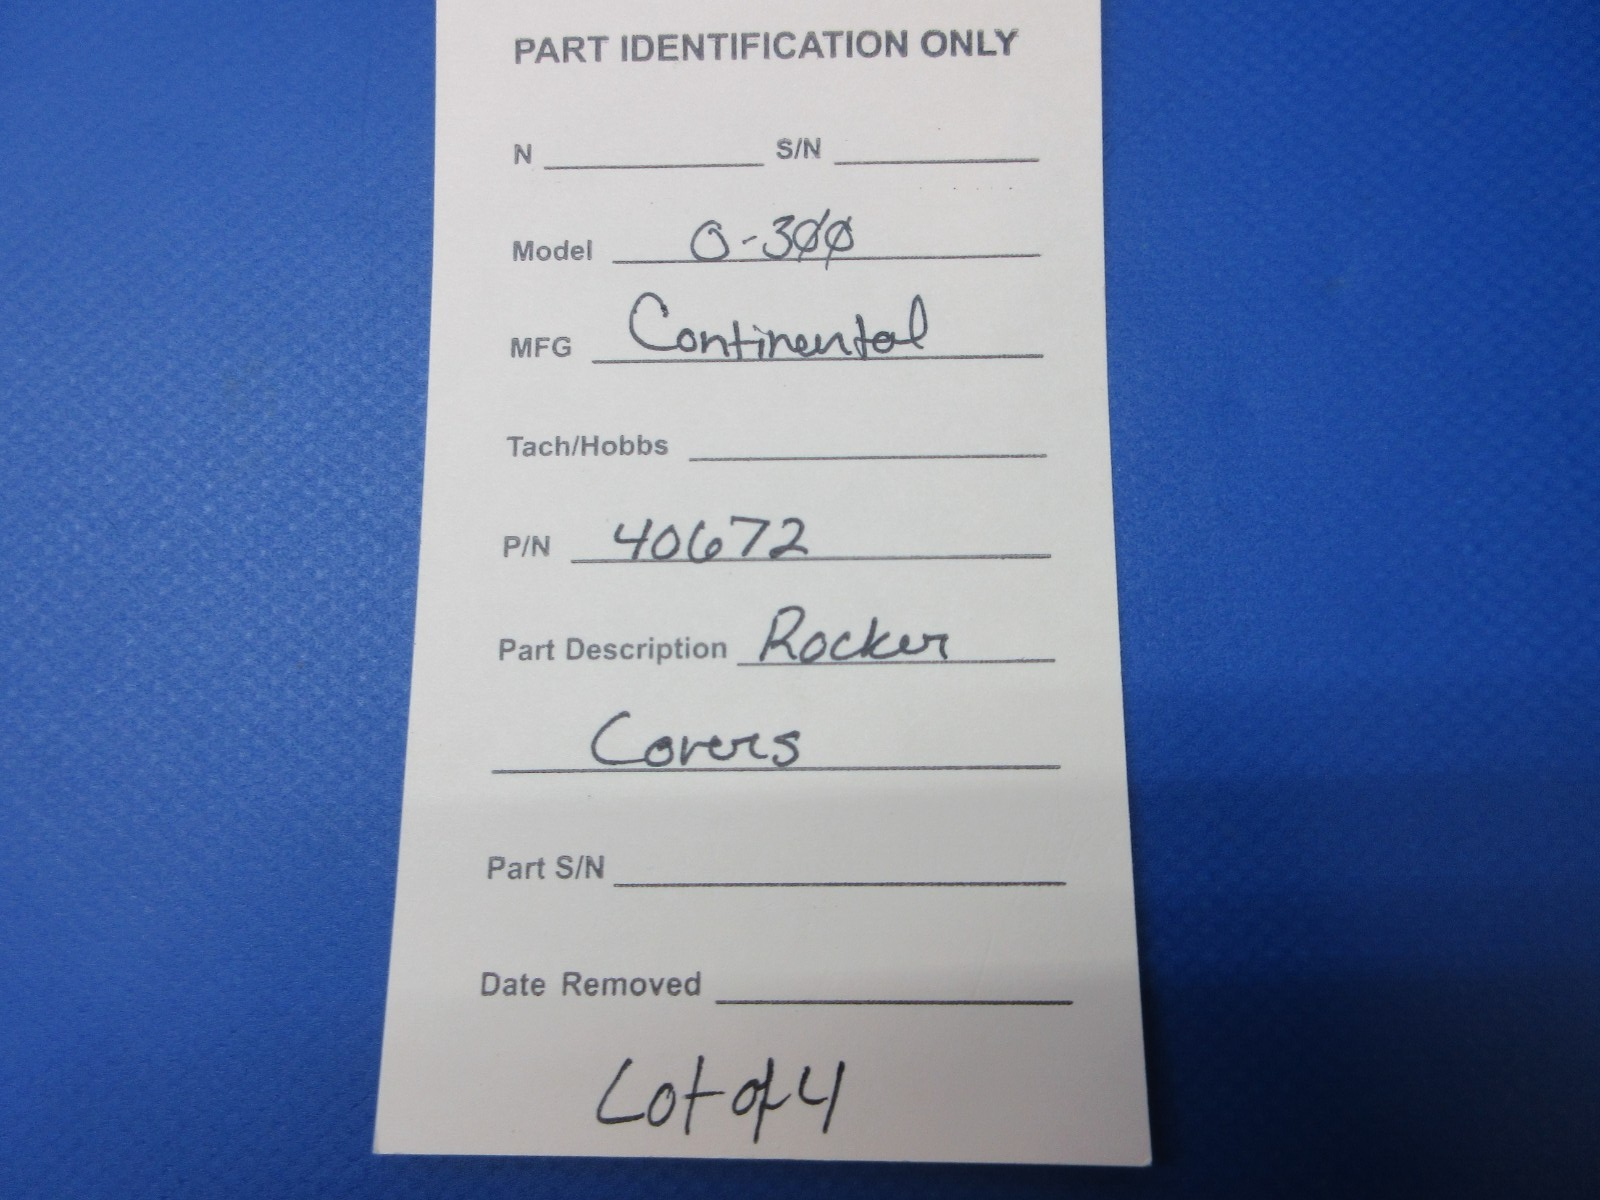 PART IDENTIFICATION ONLY
N S/N
Model O-300
MFG Continental
Tach/Hobbs
P/N 40672
Part Description Rocker
Covers
Part S/N
Date Removed
Lot of 4